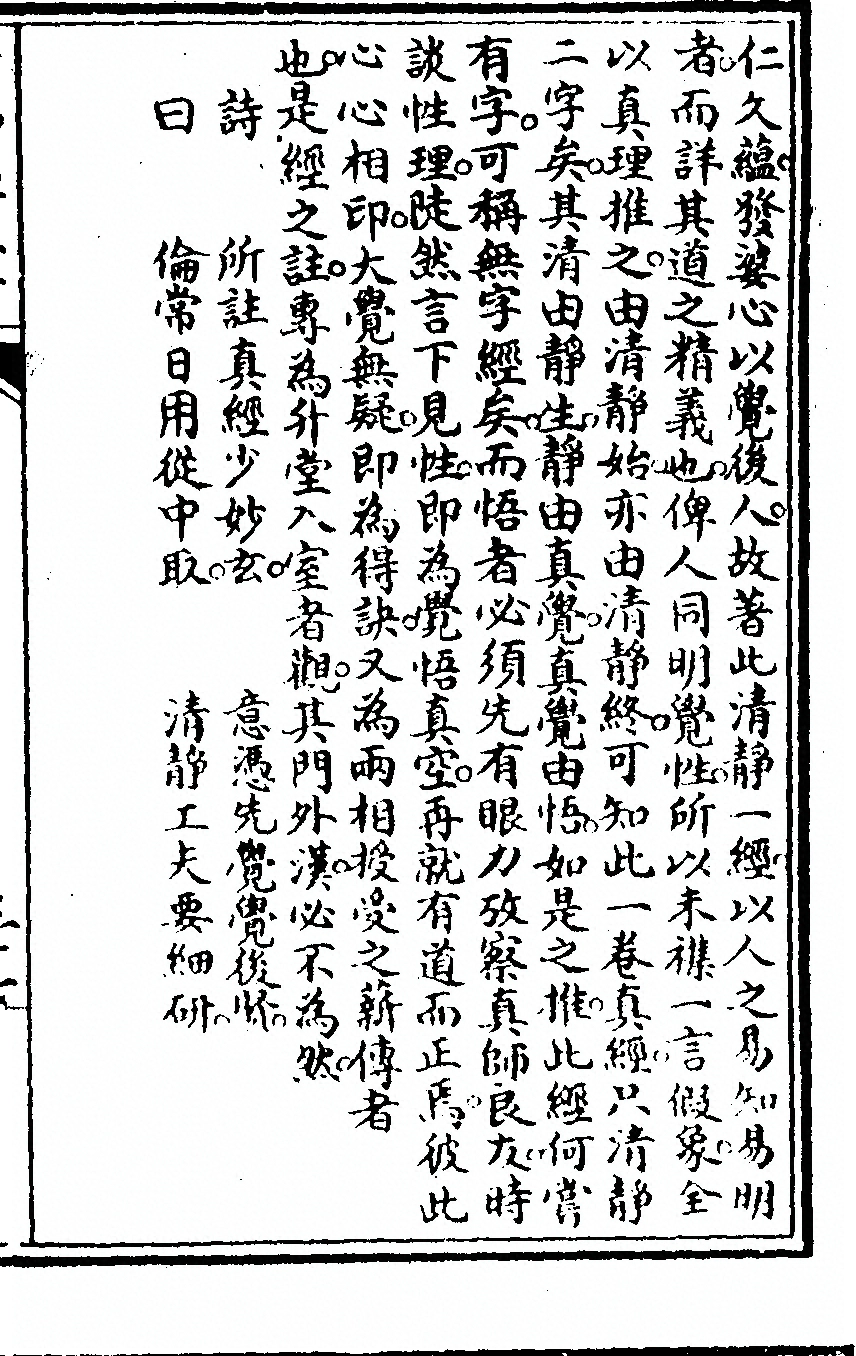 仁久蘊。發婆心以覺後人。故著此清靜一經。以人之易知易明
者。而詳其道之精義也。俾人同明覺性。所以未襍一言假象。全
以真理推之。由清靜始。亦由清靜終。可知此一卷真經。只清靜
二字矣。其清由靜生。靜由真覺。真覺由悟。如是之推。此經何嘗
有字。可稱無字經矣。而悟者必須先有眼力。攷察真師良友。時
談性理。陡然言下見性。即為覺悟真空。再就有道而正焉。彼此
心心相印。大覺無疑。即為得訣。又為兩相授受之薪傳者
也。是經之註。專為升堂入室者觀。其門外漢。必不為然。
詩 所註真經少妙玄。 意憑先覺覺後賢。
曰 倫常日用從中取。 清靜工夫要細研。